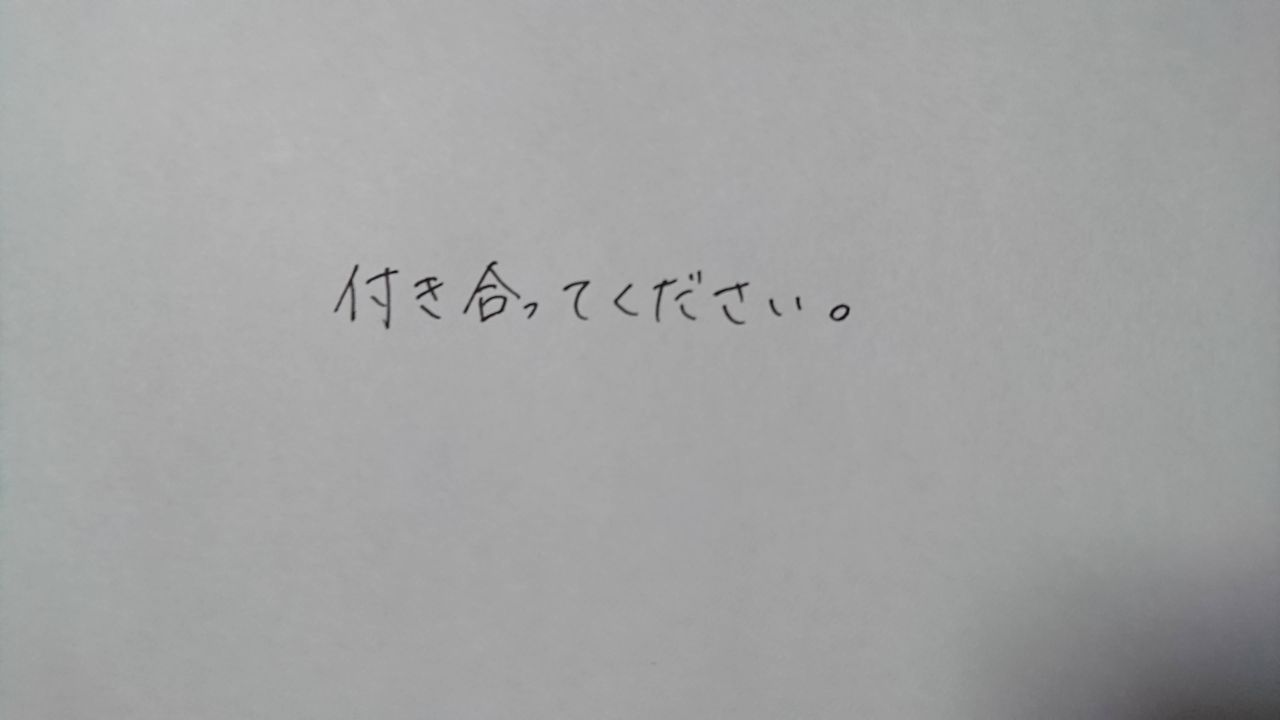 付き合ってください。